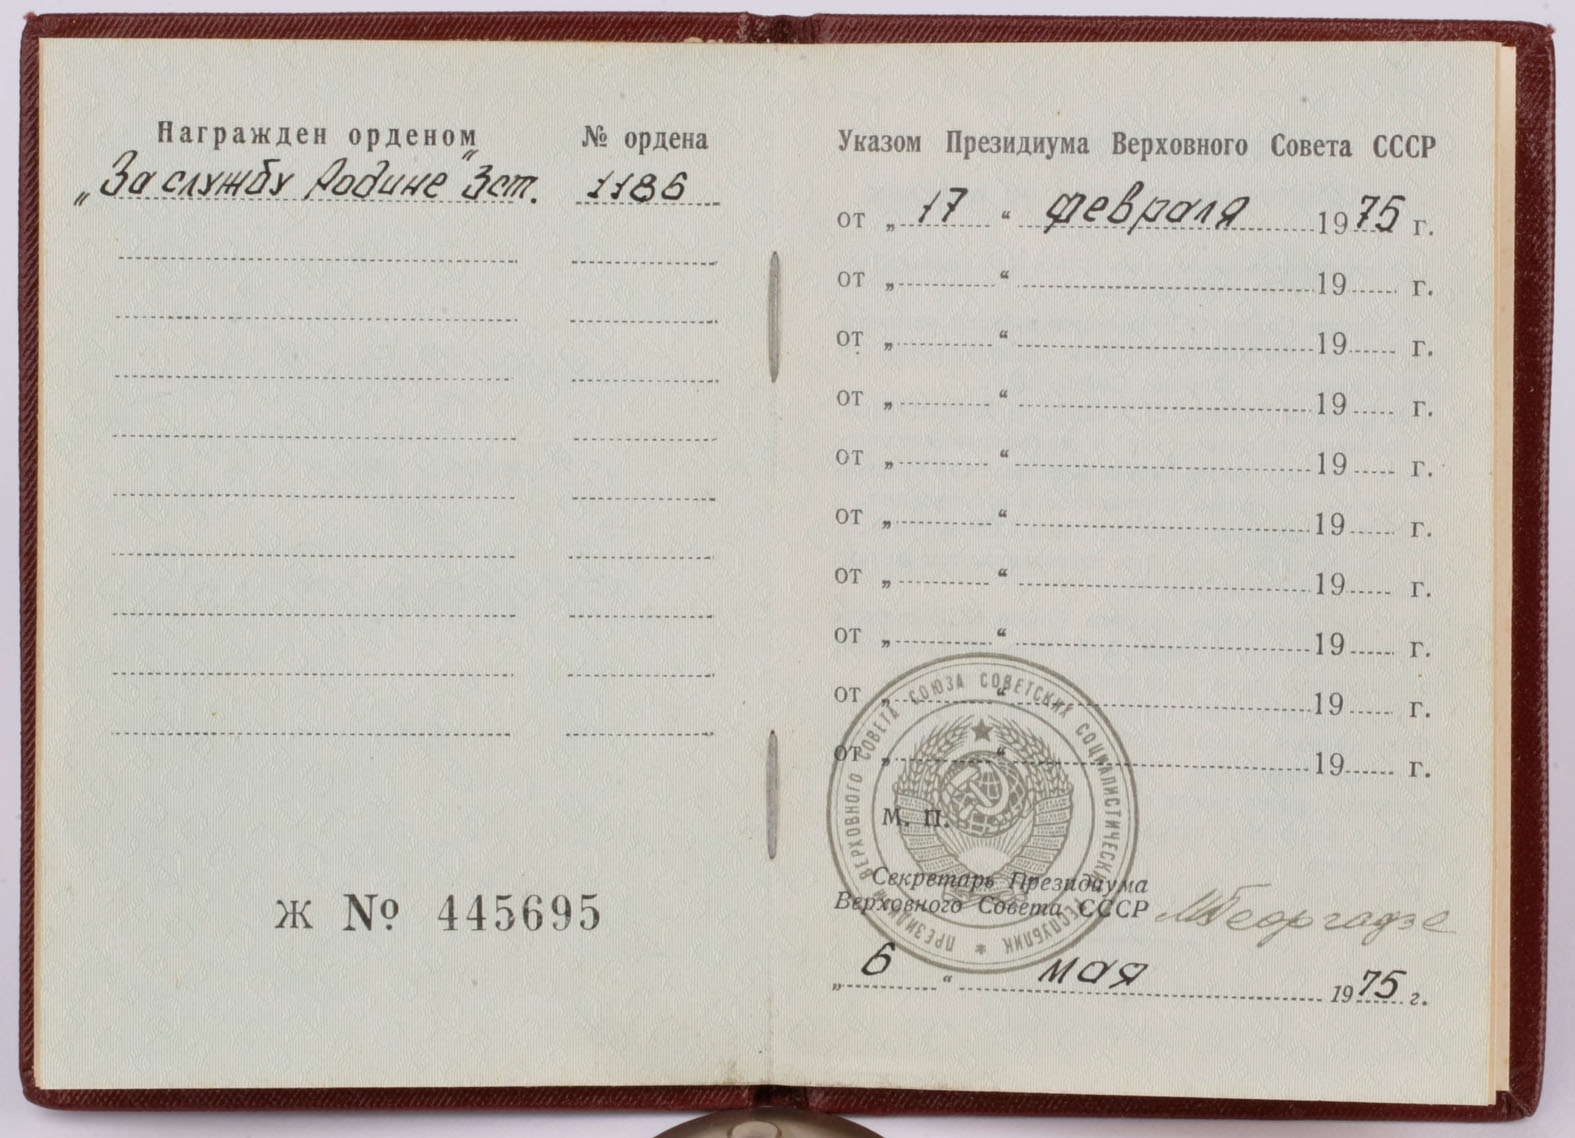 Награжден орденом № ордена
„За службу Родине" 3 ст. 1186
Ж № 445695
Указом Президиума Верховного Совета СССР
от „17“ февраля 1975 г.
от „ “ 19 г.
от „ “ 19 г.
от „ “ 19 г.
от „ “ 19 г.
от „ “ 19 г.
от „ “ 19 г.
от „ “ 19 г.
от „ “ 19 г.
от „ “ 19 г.
ПРЕЗИДИУМ ВЕРХОВНОГО СОВЕТА СОЮЗА СОВЕТСКИХ СОЦИАЛИСТИЧЕСКИХ РЕСПУБЛИК
М. П.
Секретарь Президиума
Верховного Совета СССР МГеоргадзе
„6“ мая 1975 г.